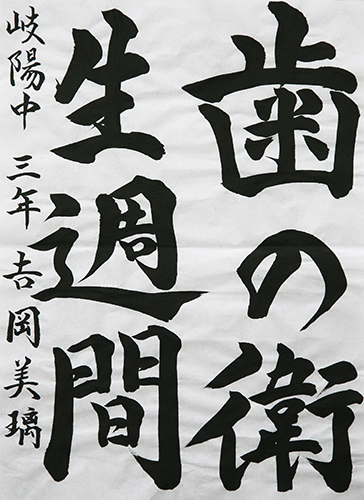 歯の衛
生週間
岐陽中 三年 吉岡美璃